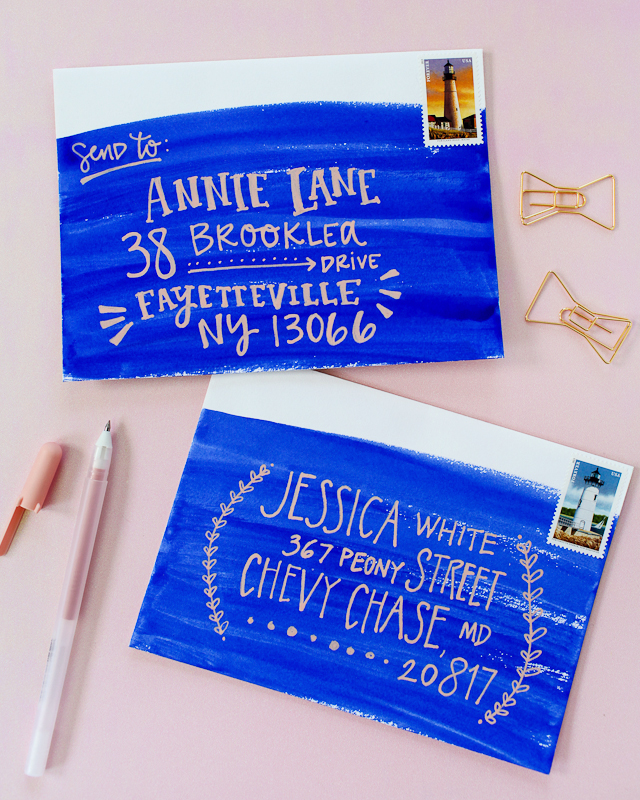 FOREVER USA
Send to:
ANNIE LANE
38 BROOKLEA
DRIVE
FAYETTEVILLE
NY 13066
FOREVER
JESSICA WHITE
367 PEONY STREET
CHEVY CHASE, MD
20817